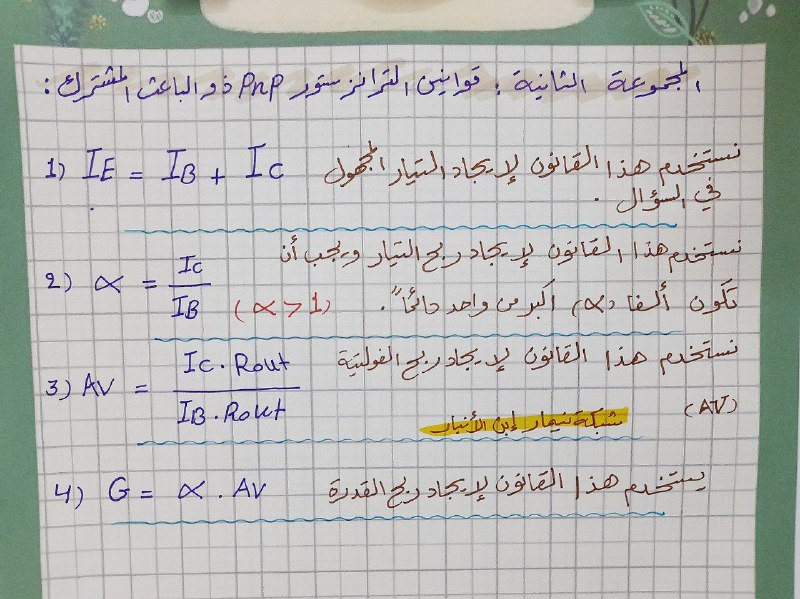 المجموعة الثانية : قوانين الترانزستور PnP ذو الباعث المشترك :
1) IE = IB + IC نستخدم هذا القانون لإيجاد التيار المجهول
في السؤال .
نستخدم هذا القانون لإيجاد ربح التيار ويجب أن
2) α = IC / IB (α > 1) تكون ألفا (α) اكبر من واحد دائماً .
3) AV = IC . Rout / IB . Rout نستخدم هذا القانون لإيجاد ربح الفولتية
(AV)
شبكة نيمار إبن الأنبار
4) G = α . AV يستخدم هذا القانون لإيجاد ربح القدرة